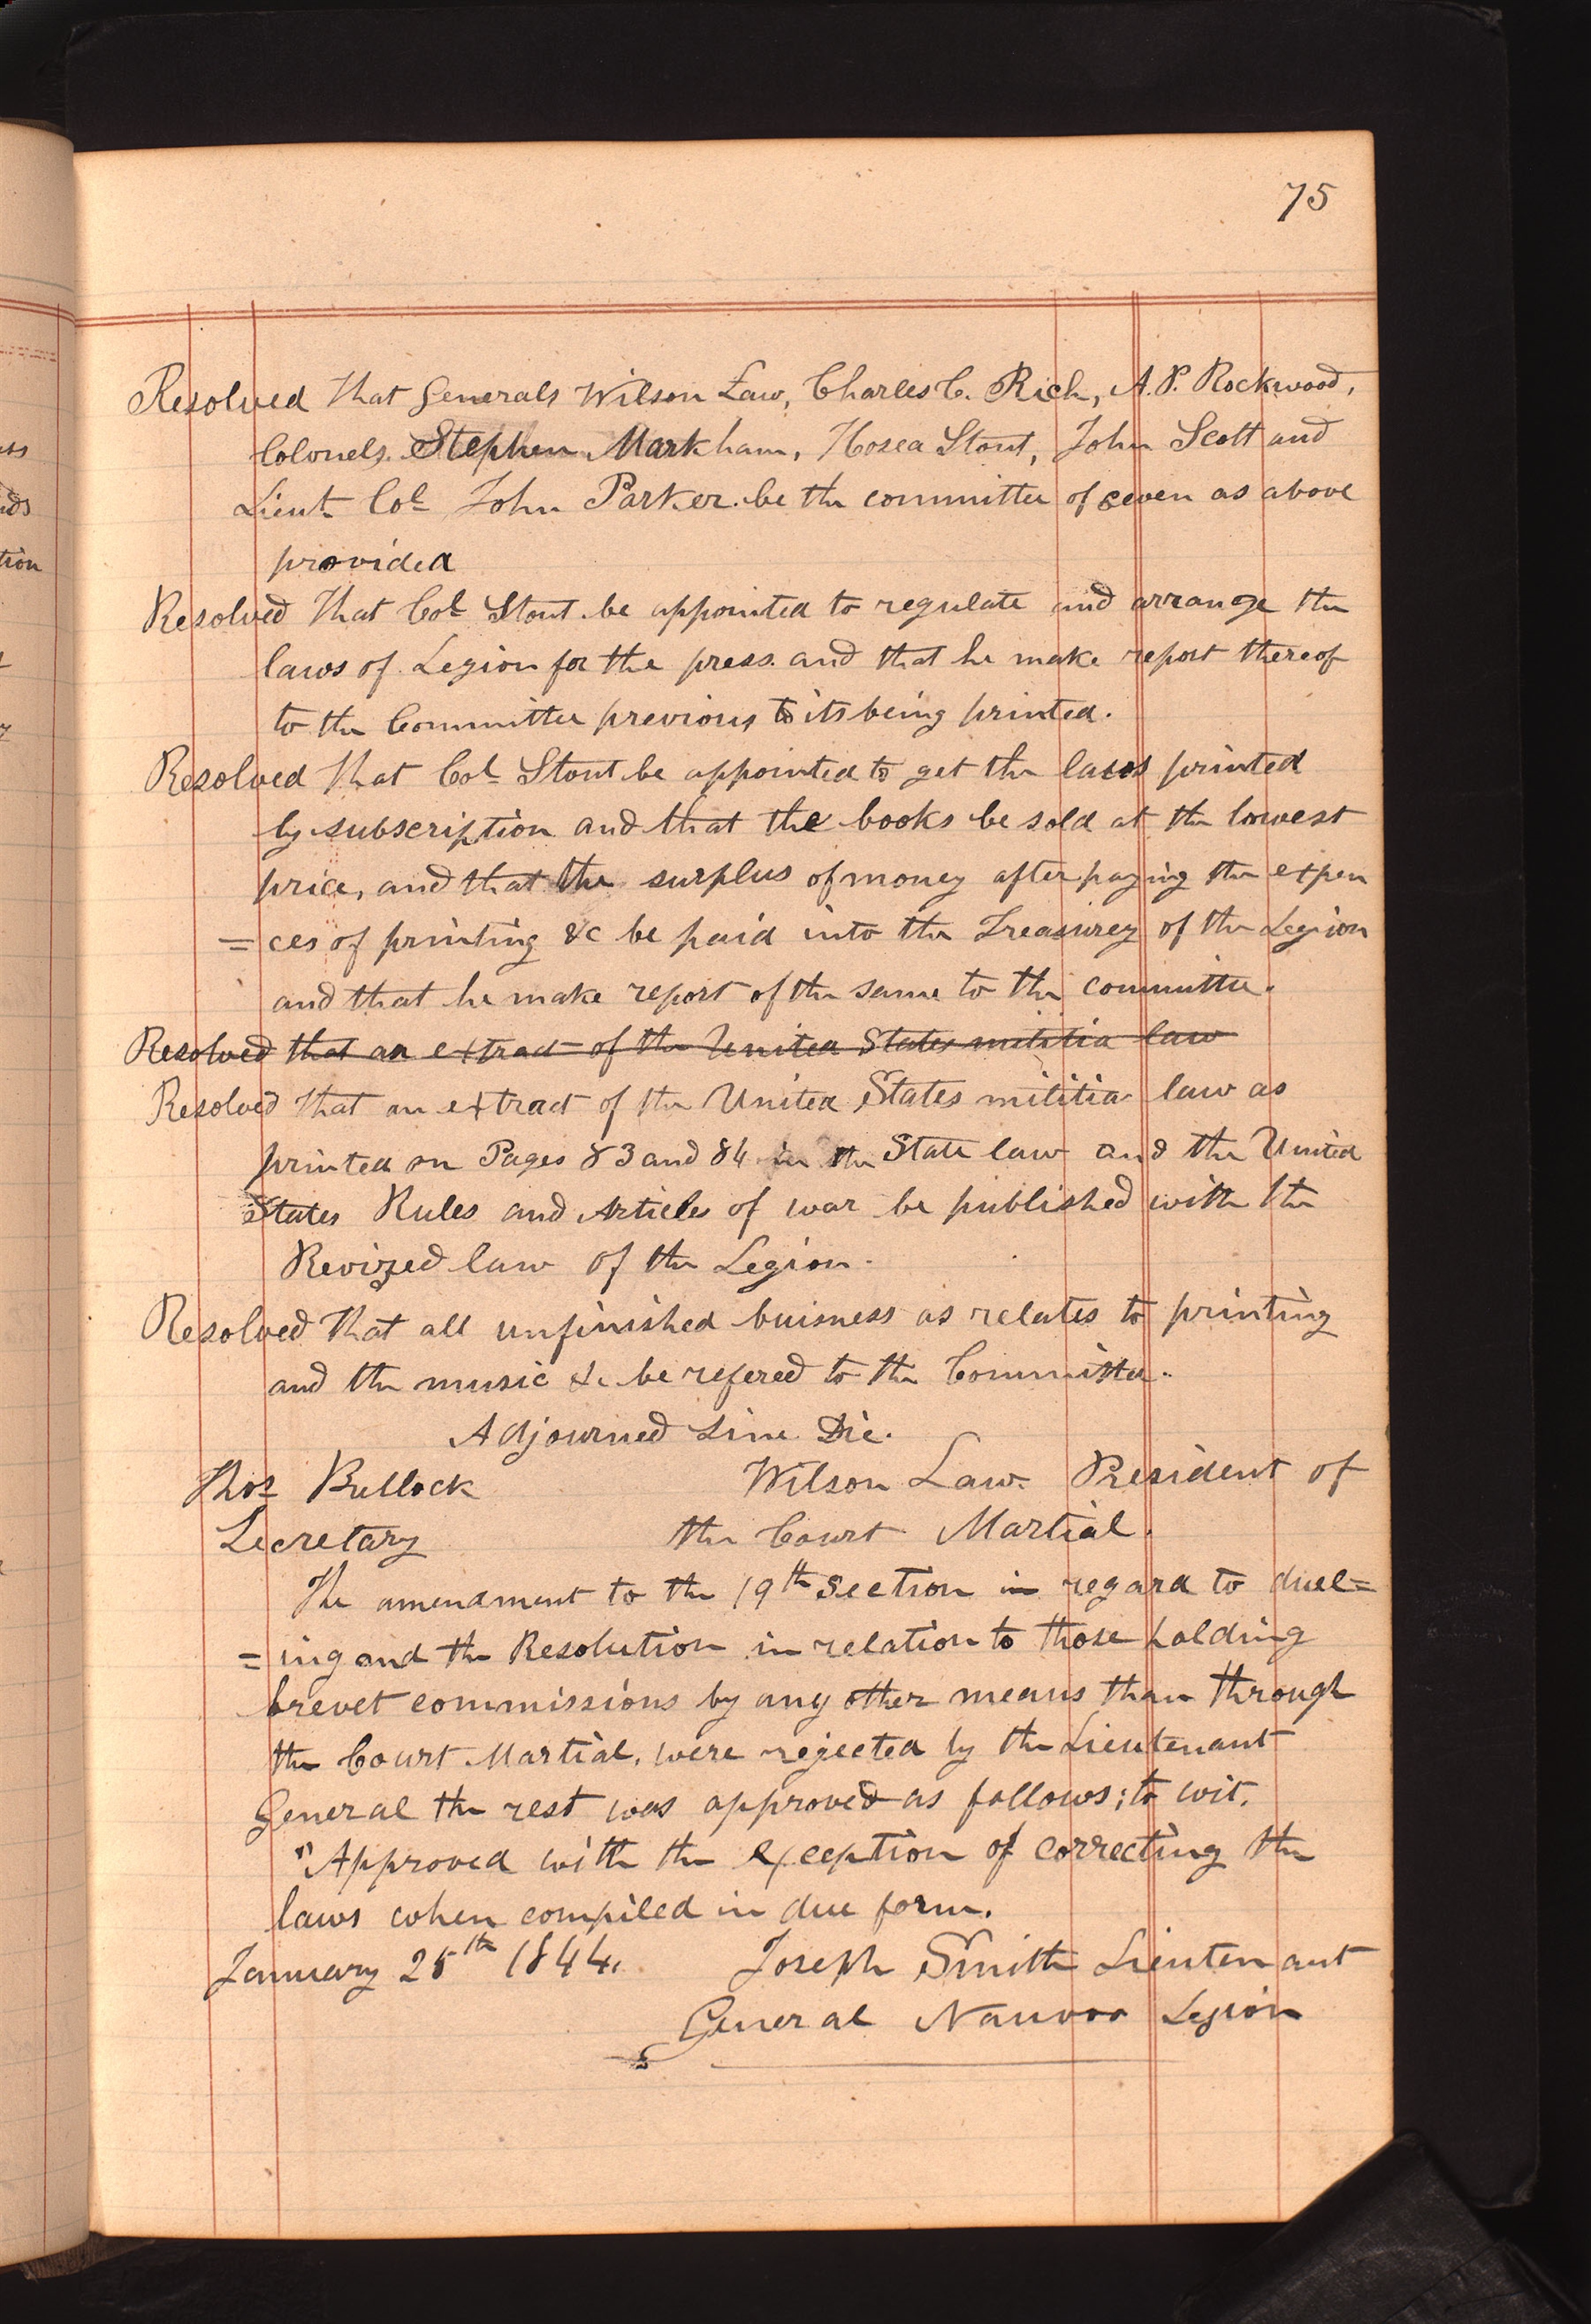 75
Resolved that Generals Wilson Law, Charles C. Rich, A.P. Rockwood,
Colonels. Stephen Markham, Hosea Stout, John Scott and
Lieut Col John Parker. be the committee of seven as above
provided
Resolved that Col Stout be appointed to regulate and arrange the
laws of Legion for the press. and that he make report thereof
to the Committee previous to its being printed.
Resolved that Col Stout be appointed to get the laws printed
by subscription and that the books be sold at the lowest
price, and that the surplus of money after paying the expen
= ces of printing &c be paid into the Treasurey of the Legion
and that he make report of the same to the committee.
Resolved that an extract of the United States militia law
Resolved that an extract of the United States militia law as
printed on Pages 83 and 84 in the State law and the United
States Rules and Articles of war be published with the
Revized law of the Legion.
Resolved that all unfinished buisness as relates to printing
and the music &c be refered to the Committee.
Adjourned Sine Die.
Thos Bullock Wilson Law. President of
Secretary the Court Martial.
The amendment to the 19th Section in regard to duel=
= ing and the Resolution in relation to those holding
brevet commissions by any other means than through
the Court Martial, were rejected by the Lieutenant
General the rest was approved as follows; to wit.
"Approved with the exception of correcting the
laws when compiled in due form.
January 25th 1844. Joseph Smith Lieutenant
General Nauvoo Legion